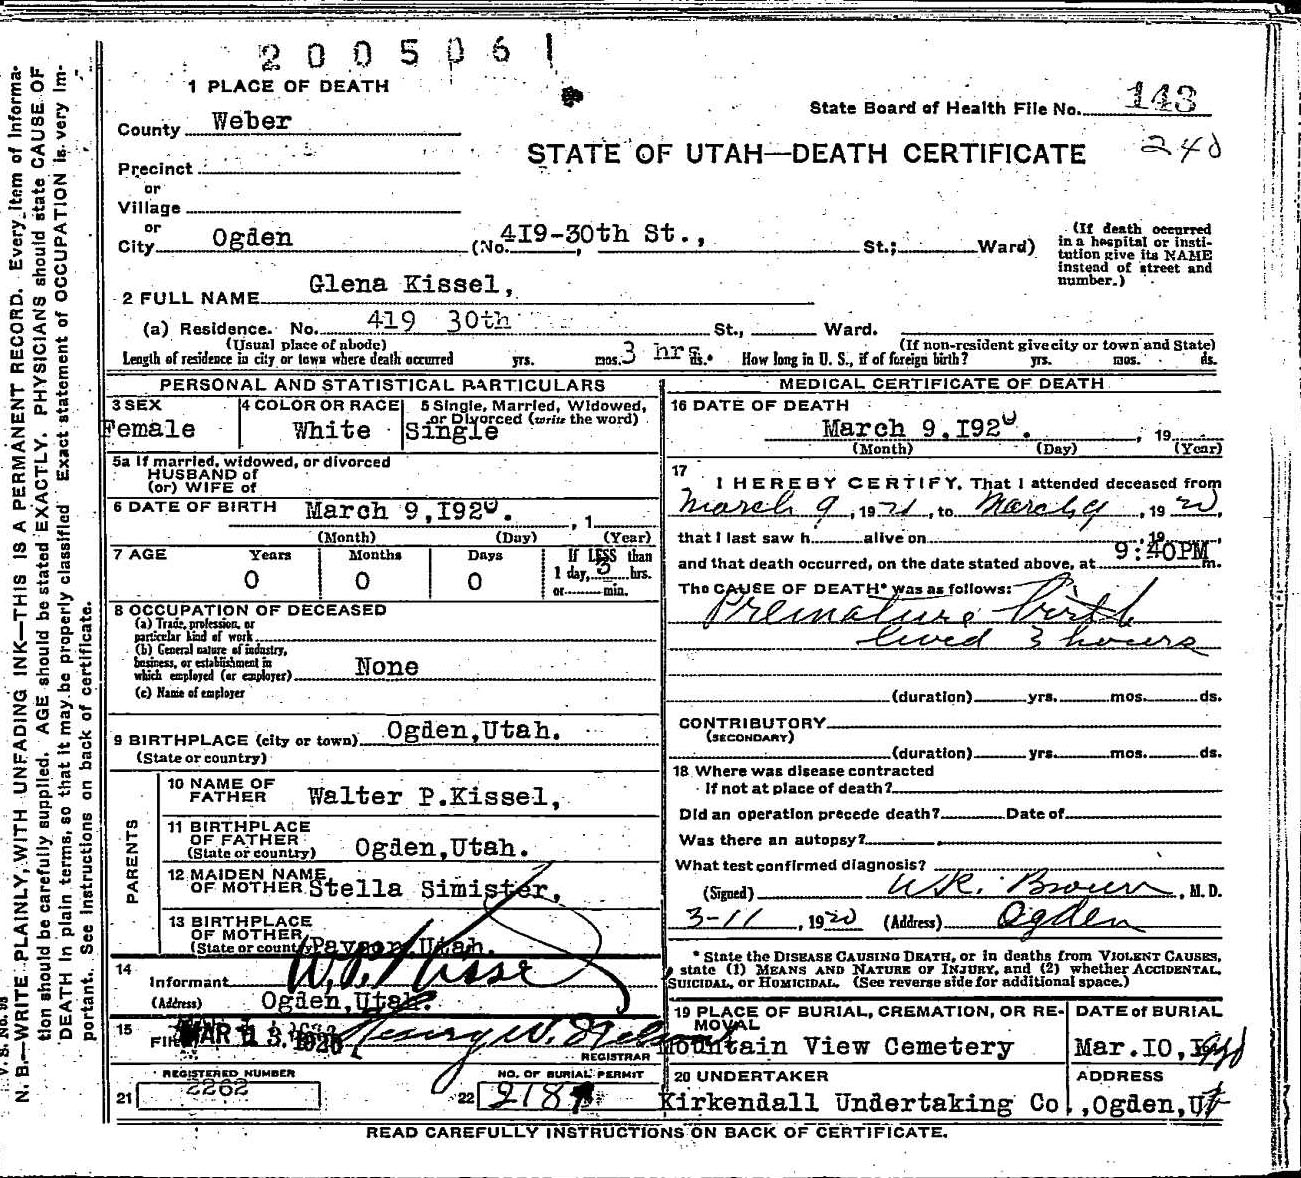 2005061
1 PLACE OF DEATH
State Board of Health File No. 143
County Weber
240
STATE OF UTAH—DEATH CERTIFICATE
Precinct
or
Village
or
City Ogden (No. 419-30th St., St.; Ward)
(If death occurred
in a hospital or insti-
tution give its NAME
instead of street and
number.)
2 FULL NAME Glena Kissel,
(a) Residence. No. 419 30th St., Ward.
(Usual place of abode) (If non-resident give city or town and State)
Length of residence in city or town where death occurred yrs. mos. 3 hrs. ds. How long in U. S., if of foreign birth? yrs. mos. ds.
PERSONAL AND STATISTICAL PARTICULARS
3 SEX
Female
4 COLOR OR RACE
White
5 Single, Married, Widowed,
or Divorced (write the word)
Single
5a If married, widowed, or divorced
HUSBAND of
(or) WIFE of
6 DATE OF BIRTH March 9,I920. , 1
(Month) (Day) (Year)
7 AGE Years Months Days If LESS than
0 0 0 1 day, 3 hrs.
or min.
8 OCCUPATION OF DECEASED
(a) Trade, profession, or
particular kind of work
(b) General nature of industry,
business, or establishment in
which employed (or employer) None
(c) Name of employer
9 BIRTHPLACE (city or town) Ogden,Utah.
(State or country)
PARENTS
10 NAME OF
FATHER Walter P.Kissel,
11 BIRTHPLACE
OF FATHER
(State or country) Ogden,Utah.
12 MAIDEN NAME
OF MOTHER Stella Simister,
13 BIRTHPLACE
OF MOTHER
(State or country) Payson,Utah.
14
Informant W.P. Kissel
(Address) Ogden,Utah.
15
MAR 13 1920 Henry W.
REGISTRAR
REGISTERED NUMBER NO. OF BURIAL PERMIT
21 2262 22 2187
MEDICAL CERTIFICATE OF DEATH
16 DATE OF DEATH
March 9.I920. , 19
(Month) (Day) (Year)
17
I HEREBY CERTIFY, That I attended deceased from
March 9, 19 , to March 9, 1920,
that I last saw h alive on , 19
and that death occurred, on the date stated above, at 9:40PM m.
The CAUSE OF DEATH* was as follows:
Premature birth
lived 3 hours
(duration) yrs. mos. ds.
CONTRIBUTORY
(SECONDARY)
(duration) yrs. mos. ds.
18 Where was disease contracted
if not at place of death?
Did an operation precede death? Date of
Was there an autopsy?
What test confirmed diagnosis?
(Signed) W.R. Brown, M. D.
3-11, 1920 (Address) Ogden
* State the DISEASE CAUSING DEATH, or in deaths from VIOLENT CAUSES,
state (1) MEANS AND NATURE OF INJURY, and (2) whether ACCIDENTAL,
SUICIDAL, or HOMICIDAL. (See reverse side for additional space.)
19 PLACE OF BURIAL, CREMATION, OR RE-
MOVAL
Mountain View Cemetery
DATE OF BURIAL
Mar.I0,
20 UNDERTAKER ADDRESS
Kirkendall Undertaking Co.,Ogden,Ut
READ CAREFULLY INSTRUCTIONS ON BACK OF CERTIFICATE.
N. B.—WRITE PLAINLY, WITH UNFADING INK—THIS IS A PERMANENT RECORD. Every item of informa-
tion should be carefully supplied. AGE should be stated EXACTLY. PHYSICIANS should state CAUSE OF
DEATH in plain terms, so that it may be properly classified. Exact statement of OCCUPATION is very im-
portant. See instructions on back of certificate.